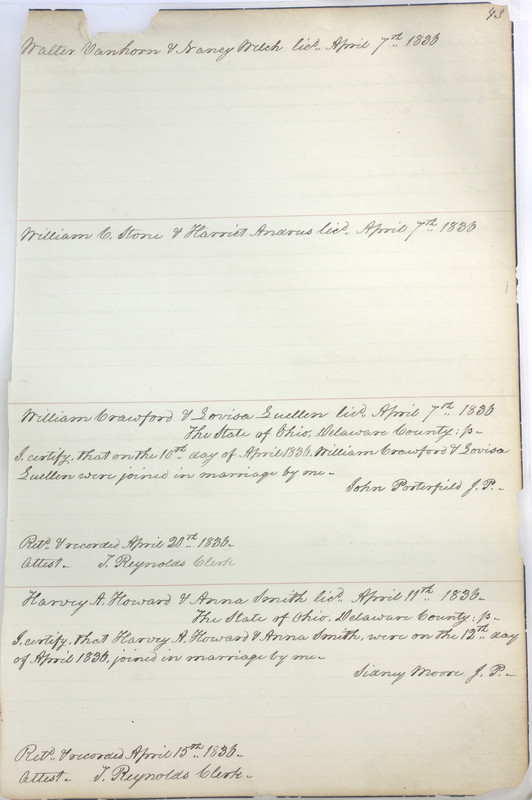 43
Walter Vanhorn & Nancy Welch licd. April 7th 1836
William C. Stone & Harriet Andrus licd. April 7th 1836
William Crawford & Lovisa Luellen licd. April 7th 1836
The State of Ohio, Delaware County: ss
I certify, that on the 10th day of April 1836. William Crawford & Lovisa
Luellen were joined in marriage by me
John Porterfield J. P.
Retd. & recorded April 20th 1836
Attest T. Reynolds Clerk
Harvey A. Howard & Anna Smith licd. April 11th 1836
The State of Ohio, Delaware County: ss
I certify, that Harvey A. Howard & Anna Smith, were on the 12th day
of April 1836, joined in marriage by me
Sidney Moore J. P.
Retd. & recorded April 15th 1836
Attest T. Reynolds Clerk